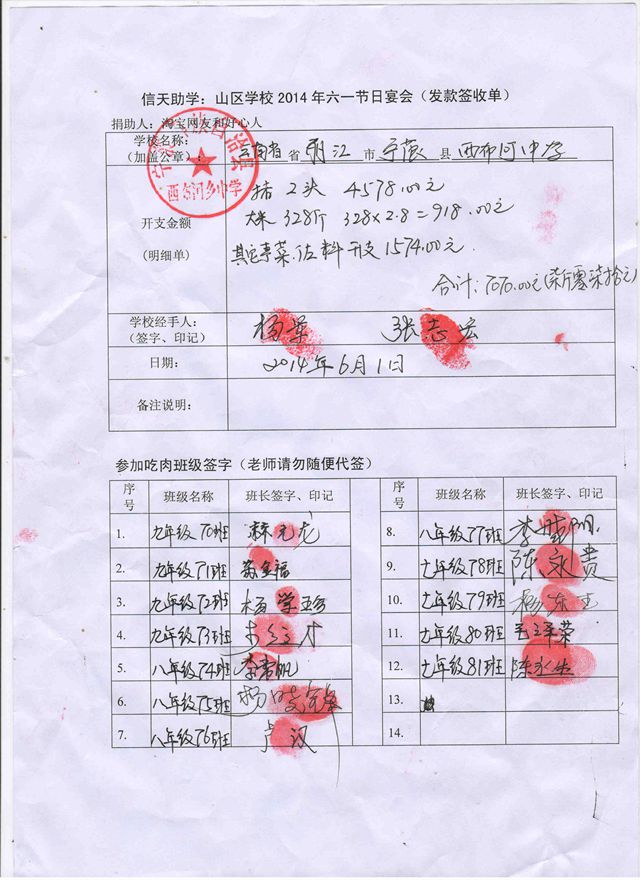 信天助学：山区学校2014年六一节日宴会（发款签收单）
捐助人：淘宝网友和好心人
学校名称：
（加盖公章）：
云南省 省 丽江 市 宁蒗 县 西布河中学
西布河乡中学
开支金额
(明细单)
猪 2头 4578.00元
大米 328斤 328×2.8=918.00元
其它事菜.佐料开支 1574.00元.
合计:7070.00元(柒仟零柒拾元)
学校经手人：
（签字、印记）
张志宏
日期：
2014年6月1日
备注说明：
参加吃肉班级签字（老师请勿随便代签）
序号 班级名称 班长签字、印记 序号 班级名称 班长签字、印记
1. 九年级70班 8. 八年级77班
2. 九年级71班 9. 七年级78班 陈永贵
3. 九年级72班 杨学珍 10. 七年级79班
4. 九年级73班 11 七年级80班 毛泽荣
5. 八年级74班 12 七年级81班
6. 八年级75班 13.
7. 八年级76班 卢汉 14.